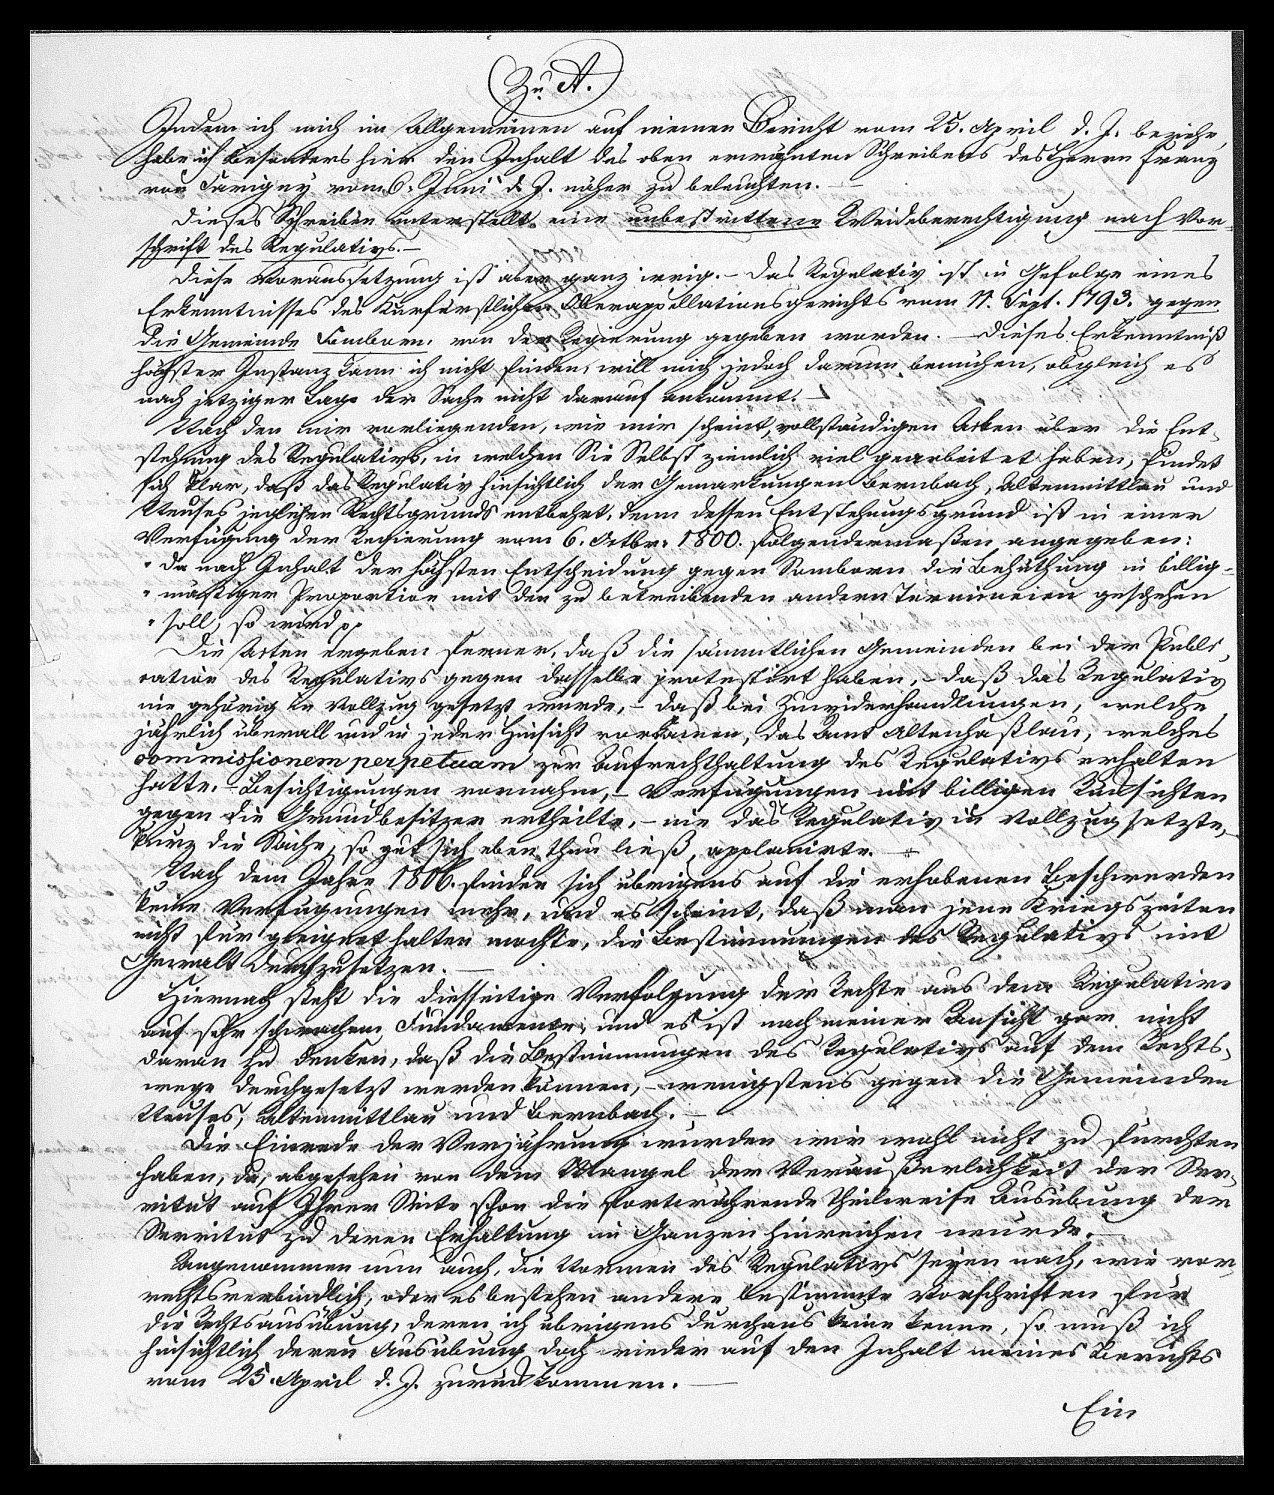 Zu A.
Indem ich mich im Allgemeinen auf meinen Bericht vom 25. April d. J. beziehe,
habe ich besonders hier den Inhalt des oben erwähnten Schreibens des Herrn Franz
von Savigny vom 6. Juni d. J. näher zu beleuchten. —
Dieses Schreiben unterstellt eine unbestrittene Weideberechtigung nach Vor-
schrift des Regulativs. —
Diese Voraussetzung ist aber ganz irrig. – Das Regulativ ist in Gefolge eines
Erkenntnisses des Kurfürstlichen Oberappellationsgerichts vom 11. Sept. 1793. gegen
die Gemeinde Somborn, von der Regierung gegeben worden. — Dieses Erkenntniß
höchster Instanz kann ich nicht finden, will mich jedoch darum bemühen, obgleich es
nach jetziger Lage der Sache nicht darauf ankommt. —
Nach den mir vorliegenden, wie mir scheint, vollständigen Akten über die Ent-
stehung des Regulativs, in welchen Sie Selbst ziemlich viel gearbeitet haben, findet
sich klar, daß das Regulativ hinsichtlich der Gemarkungen Bernbach, Altenmittlau und
Neuses jeglichen Rechtsgrunds entbehrt, denn dessen Entstehungsgrund ist in einer
Verfügung der Regierung vom 6. Octbr. 1800. folgendermaßen angegeben:
" Da nach Inhalt der höchsten Entscheidung gegen Somborn die Behüthung in billig-
" mäsiger Proportion mit den zu betreibenden andern Termineien geschehen
" soll, so wird pp
Die Akten ergeben ferner, daß die sämmtlichen Gemeinden bei der Publi-
cation des Regulativs gegen dasselbe protestirt haben, – daß das Regulativ
nie gehörig in Vollzug gesetzt wurde, – daß bei Zuwiderhandlungen, welche
jährlich überall und in jeder Hinsicht vorkamen, das Amt Altenhaßlau, welches
commissionem perpetuam zur Aufrechthaltung des Regulativs erhalten
hatte, – Besichtigungen vornahm, – Verfügungen mit billigen Rücksichten
gegen die Grundbesitzer ertheilte, – nie das Regulativ in Vollzug setzte, –
kurz die Sache, so gut sich eben thun ließ, applanirte. —
Nach dem Jahre 1806. finden sich übrigens auf die erhobenen Beschwerden
keine Verfügungen mehr, und es scheint, daß man jene Kriegszeiten
nicht für geeignet halten mochte, die Bestimmungen des Regulativs mit
Gewalt durchzusetzen. —
Hiernach steht die diesseitige Verfolgung der Rechte aus dem Regulative
auf sehr schwachem Fundamente, und es ist nach meiner Ansicht gar nicht
daran zu denken, daß die Bestimmungen des Regulativs auf dem Rechts-
wege durchgesetzt werden können, – wenigstens gegen die Gemeinden
Neuses, Altenmittlau und Bernbach. —
Die Einrede der Verjährung würden wir wohl nicht zu fürchten
haben, da, abgesehen von dem Mangel der Veräußerlichkeit der Ser-
vitut auf Ihrer Seite schon die fortwährende theilweise Ausübung der
Servitut zu deren Erhaltung im Ganzen hinreichen würde. —
Angenommen nun auch, die Normen des Regulativs seyen nach, wie vor,
rechtsverbindlich, oder es bestehen andere bestimmte Vorschriften für
die Rechtsausübung, deren ich übrigens durchaus keine kenne, so muß ich
hinsichtlich deren Ausübung doch wieder auf den Inhalt meines Berichts
vom 25. April d. J. zurückkommen. —
Ein